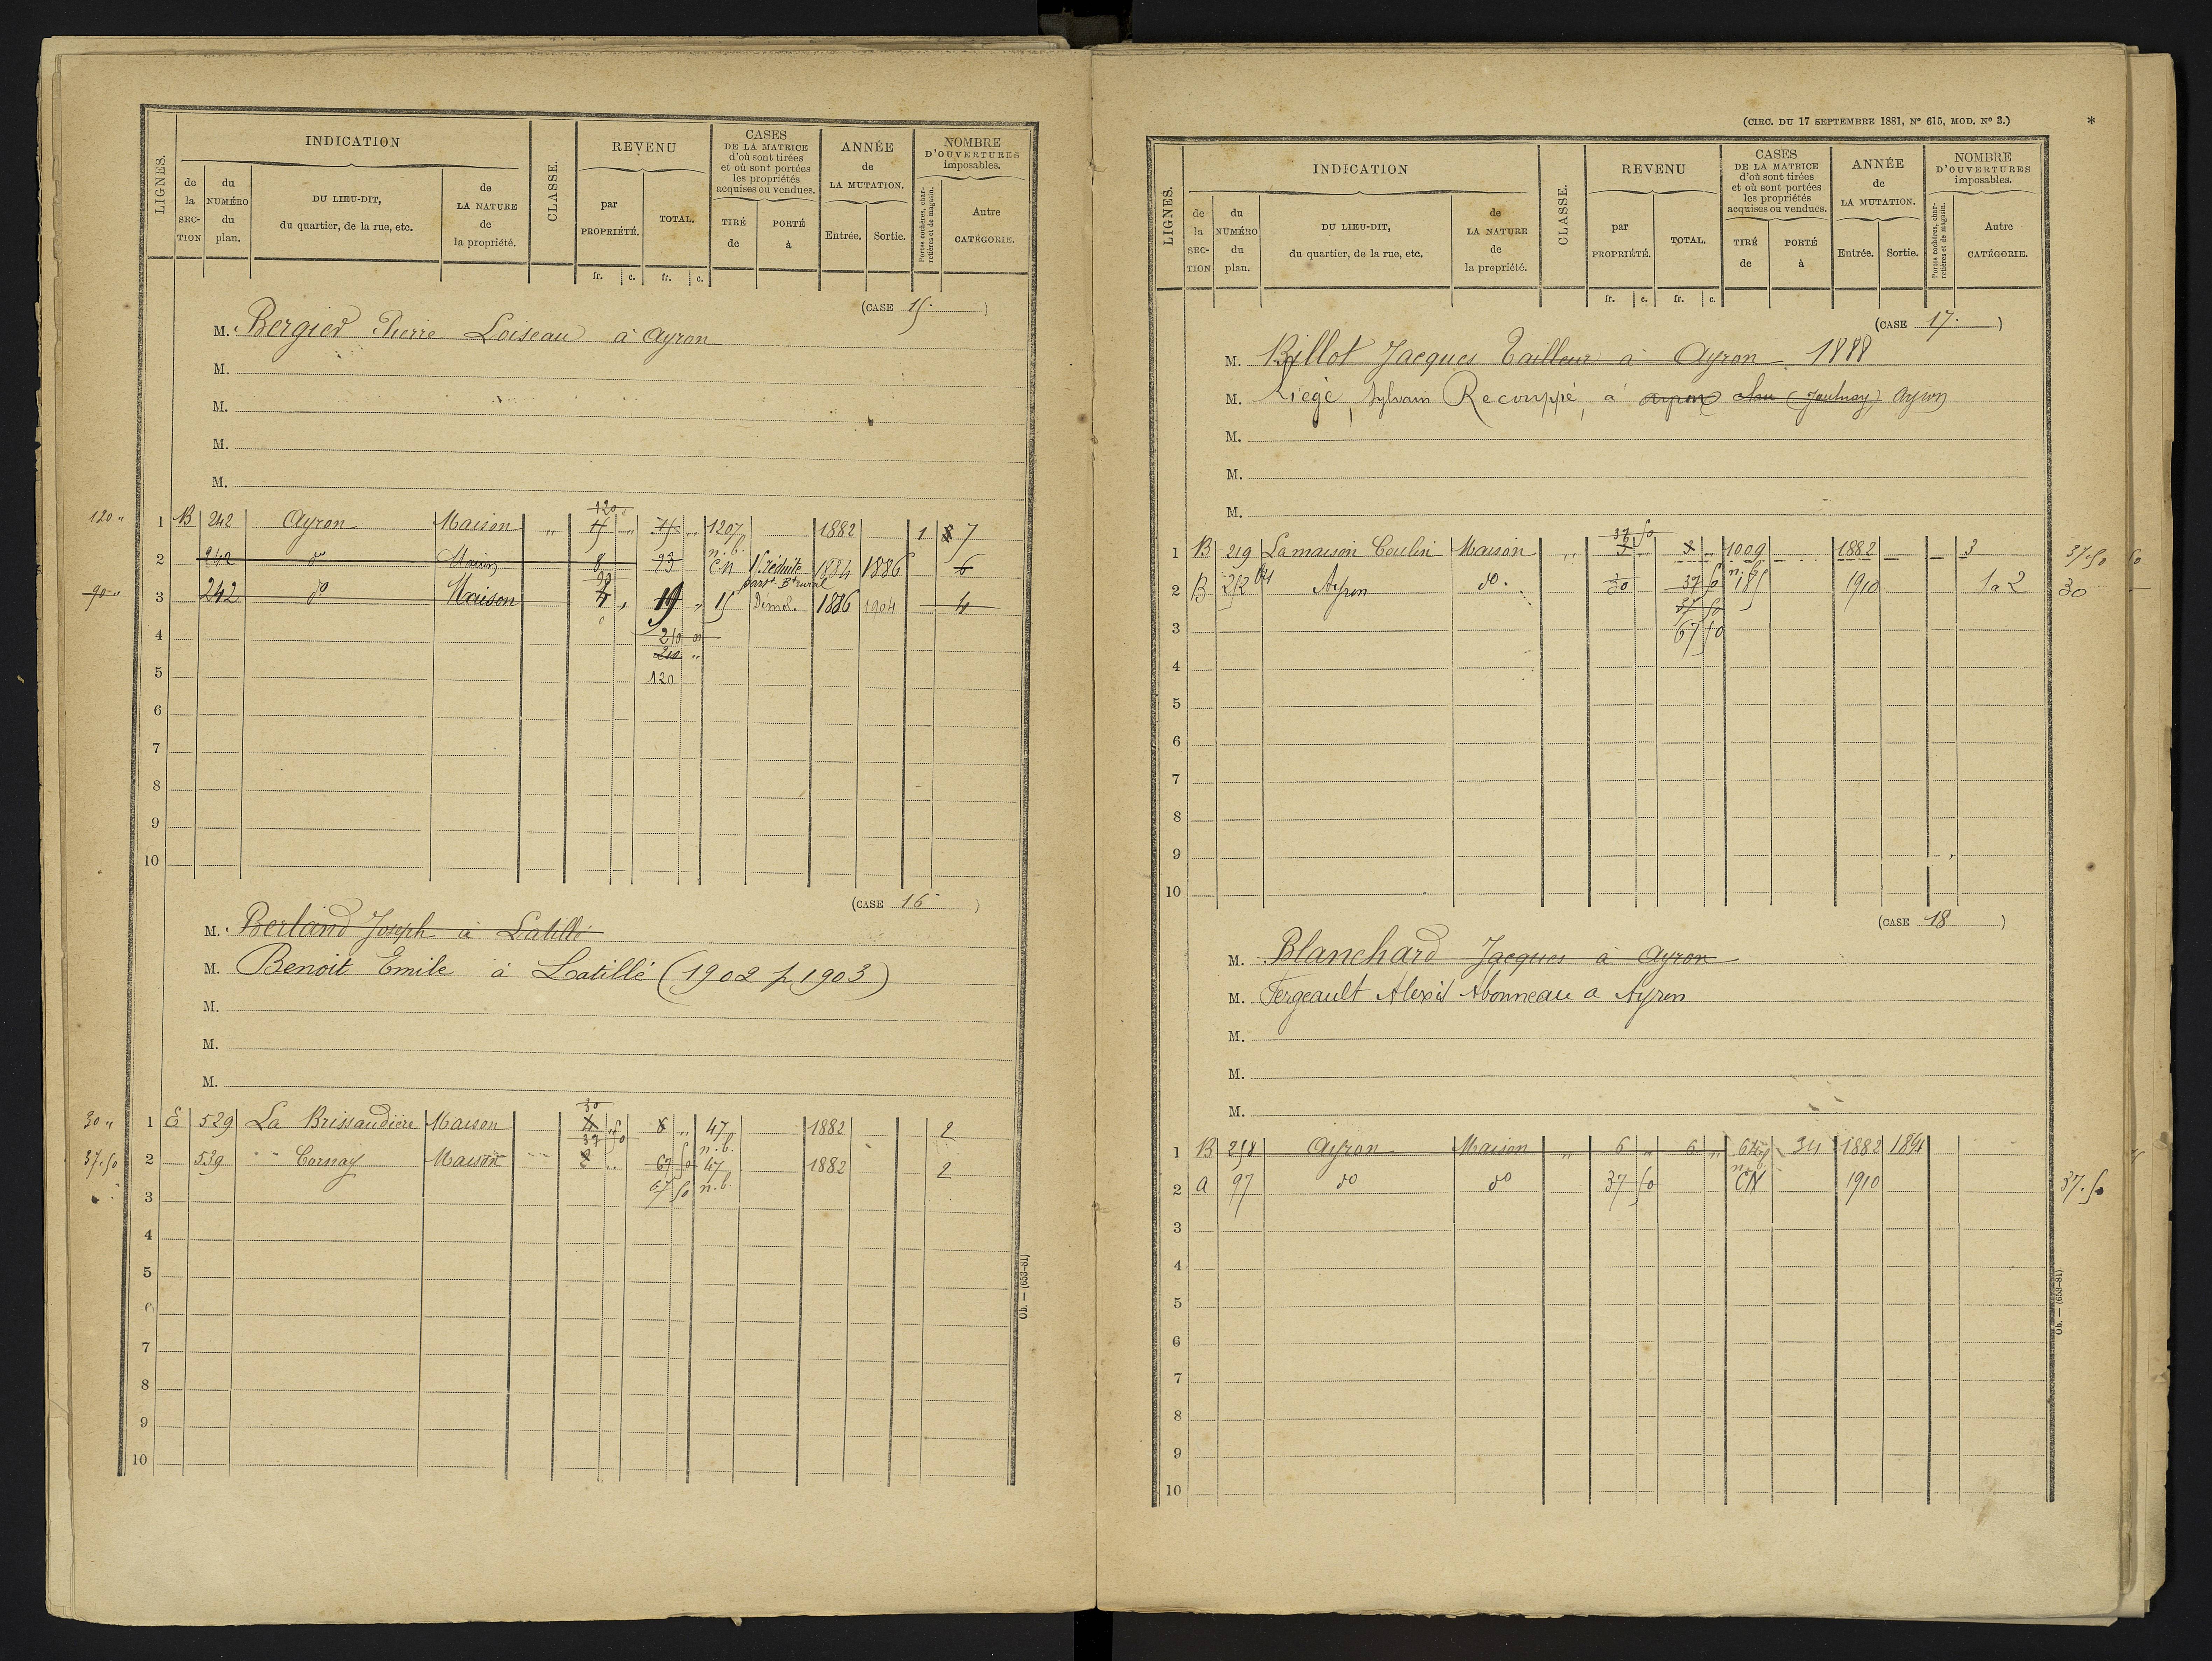 LIGNES.
INDICATION
de la SECTION
du NUMÉRO du plan.
DU LIEU-DIT, du quartier, de la rue, etc.
de LA NATURE de la propriété.
CLASSE.
REVENU
par PROPRIÉTÉ.
TOTAL.
fr. c. fr. c.
CASES DE LA MATRICE d'où sont tirées et où sont portées les propriétés acquises ou vendues.
TIRÉ de
PORTÉ à
ANNÉE de LA MUTATION.
Entrée. Sortie.
NOMBRE D'OUVERTURES imposables.
Portes cochères, charretières et de magasin.
Autre CATÉGORIE.
(CASE 15.)
M. Bergier Pierre Loiseau à Ayron
M.
M.
M.
M.
120 "
120
1 B 242 Ayron Maison " 15 " 15 " 1207 1882 1 8 7
n. b.
2 242 do Maison 8 23 C.N 1884 1886 6
part. Bt rural
90 "
90
3 242 do Maison 4 " 19 " 15 Démol. 1886 1904 4
4 210 00
210 "
5 120
6
7
8
9
10
(CASE 16)
M. Berland Joseph à Latillé
M. Benoit Emile à Latillé (1902 p 1903)
M.
M.
M.
30
30 " 1 E 529 La Brissaudière Maison 4 " 8 " 47 1882 2
37 50 n. b.
37.50 2 539 " Cornay Maison " 67 50 47 1882 2
3 67 50 n. b.
4
5
6
7
8
9
10
Ob. — (653-81)
(CIRC. DU 17 SEPTEMBRE 1881, No 615, MOD. No 3.)
*
LIGNES.
INDICATION
de la SECTION
du NUMÉRO du plan.
DU LIEU-DIT, du quartier, de la rue, etc.
de LA NATURE de la propriété.
CLASSE.
REVENU
par PROPRIÉTÉ.
TOTAL.
fr. c. fr. c.
CASES DE LA MATRICE d'où sont tirées et où sont portées les propriétés acquises ou vendues.
TIRÉ de
PORTÉ à
ANNÉE de LA MUTATION.
Entrée. Sortie.
NOMBRE D'OUVERTURES imposables.
Portes cochères, charretières et de magasin.
Autre CATÉGORIE.
(CASE 17.)
M. Billot Jacques Tailleur à Ayron 1888
M. Liège, Sylvain Recouppé, à Ayron (Jaulnay) Ayron
M.
M.
M.
37 50
1 B 219 La maison Coulin Maison " 3 " 3 " 1009 1882 3 37.50
n. b.
2 B 252 bis Ayron do. 30 37 50 185 1910 1 a 2 30
37 50
3 67 50
4
5
6
7
8
9
10
(CASE 18)
M. Blanchard Jacques à Ayron
M. Fergeault Alexis Abonneau a Ayron
M.
M.
M.
1 B 258 Ayron Maison " 6 " 6 " 34 1882 1891
n. b.
2 a 97 do do 37 50 CN 1910 37.50
3
4
5
6
7
8
9
10
Ob. — (653-81)